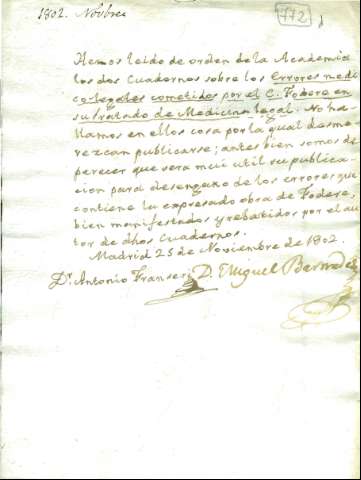 1802. Novbre
772
Hemos leido de orden de la Academia
los dos Cuadernos sobre los Errores medi
colegales cometidos por el C. Fodere en
su tratado de Medicina legal. No ha
llamos en ellos cosa por la qual desme-
rezcan publicarse; antes bien somos de
parecer que sera mui útil su publica-
cion para desengaño de los errores que
contiene la expresada obra de Fodere,
bien manifestados y rebatidos por el au
tor de dhos Cuadernos.
Madrid 25 de Noviembre de 1802.
Dr. Antonio Franseri D. Miguel Barnades